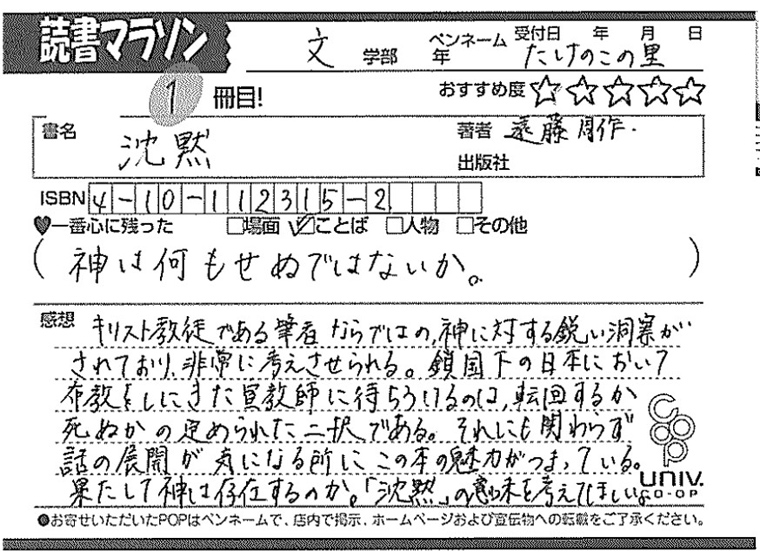 読書マラソン
文 学部 年 ペンネーム たけのこの里 受付日 年 月 日
1 冊目! おすすめ度 ☆☆☆☆☆
書名 沈黙 著者 遠藤周作.
出版社
ISBN 4-10-112315-2
♥一番心に残った □場面 ☑ことば □人物 □その他
(神は何もせぬではないか。)
感想 キリスト教徒である筆者ならではの、神に対する鋭い洞察が
されており、非常に考えさせられる。鎖国下の日本において
布教をしにきた宣教師に待ちうけるのは、転回するか
死ぬかの定められた二択である。それにも関わらず
話の展開が気になる所にこの本の魅力がつまっている。
果たして神は存在するのか。「沈黙」の意味を考えてほしい。
coop
UNIV.
CO-OP
●お寄せいただいたPOPはペンネームで、店内で掲示、ホームページおよび宣伝物への転載をご了承ください。